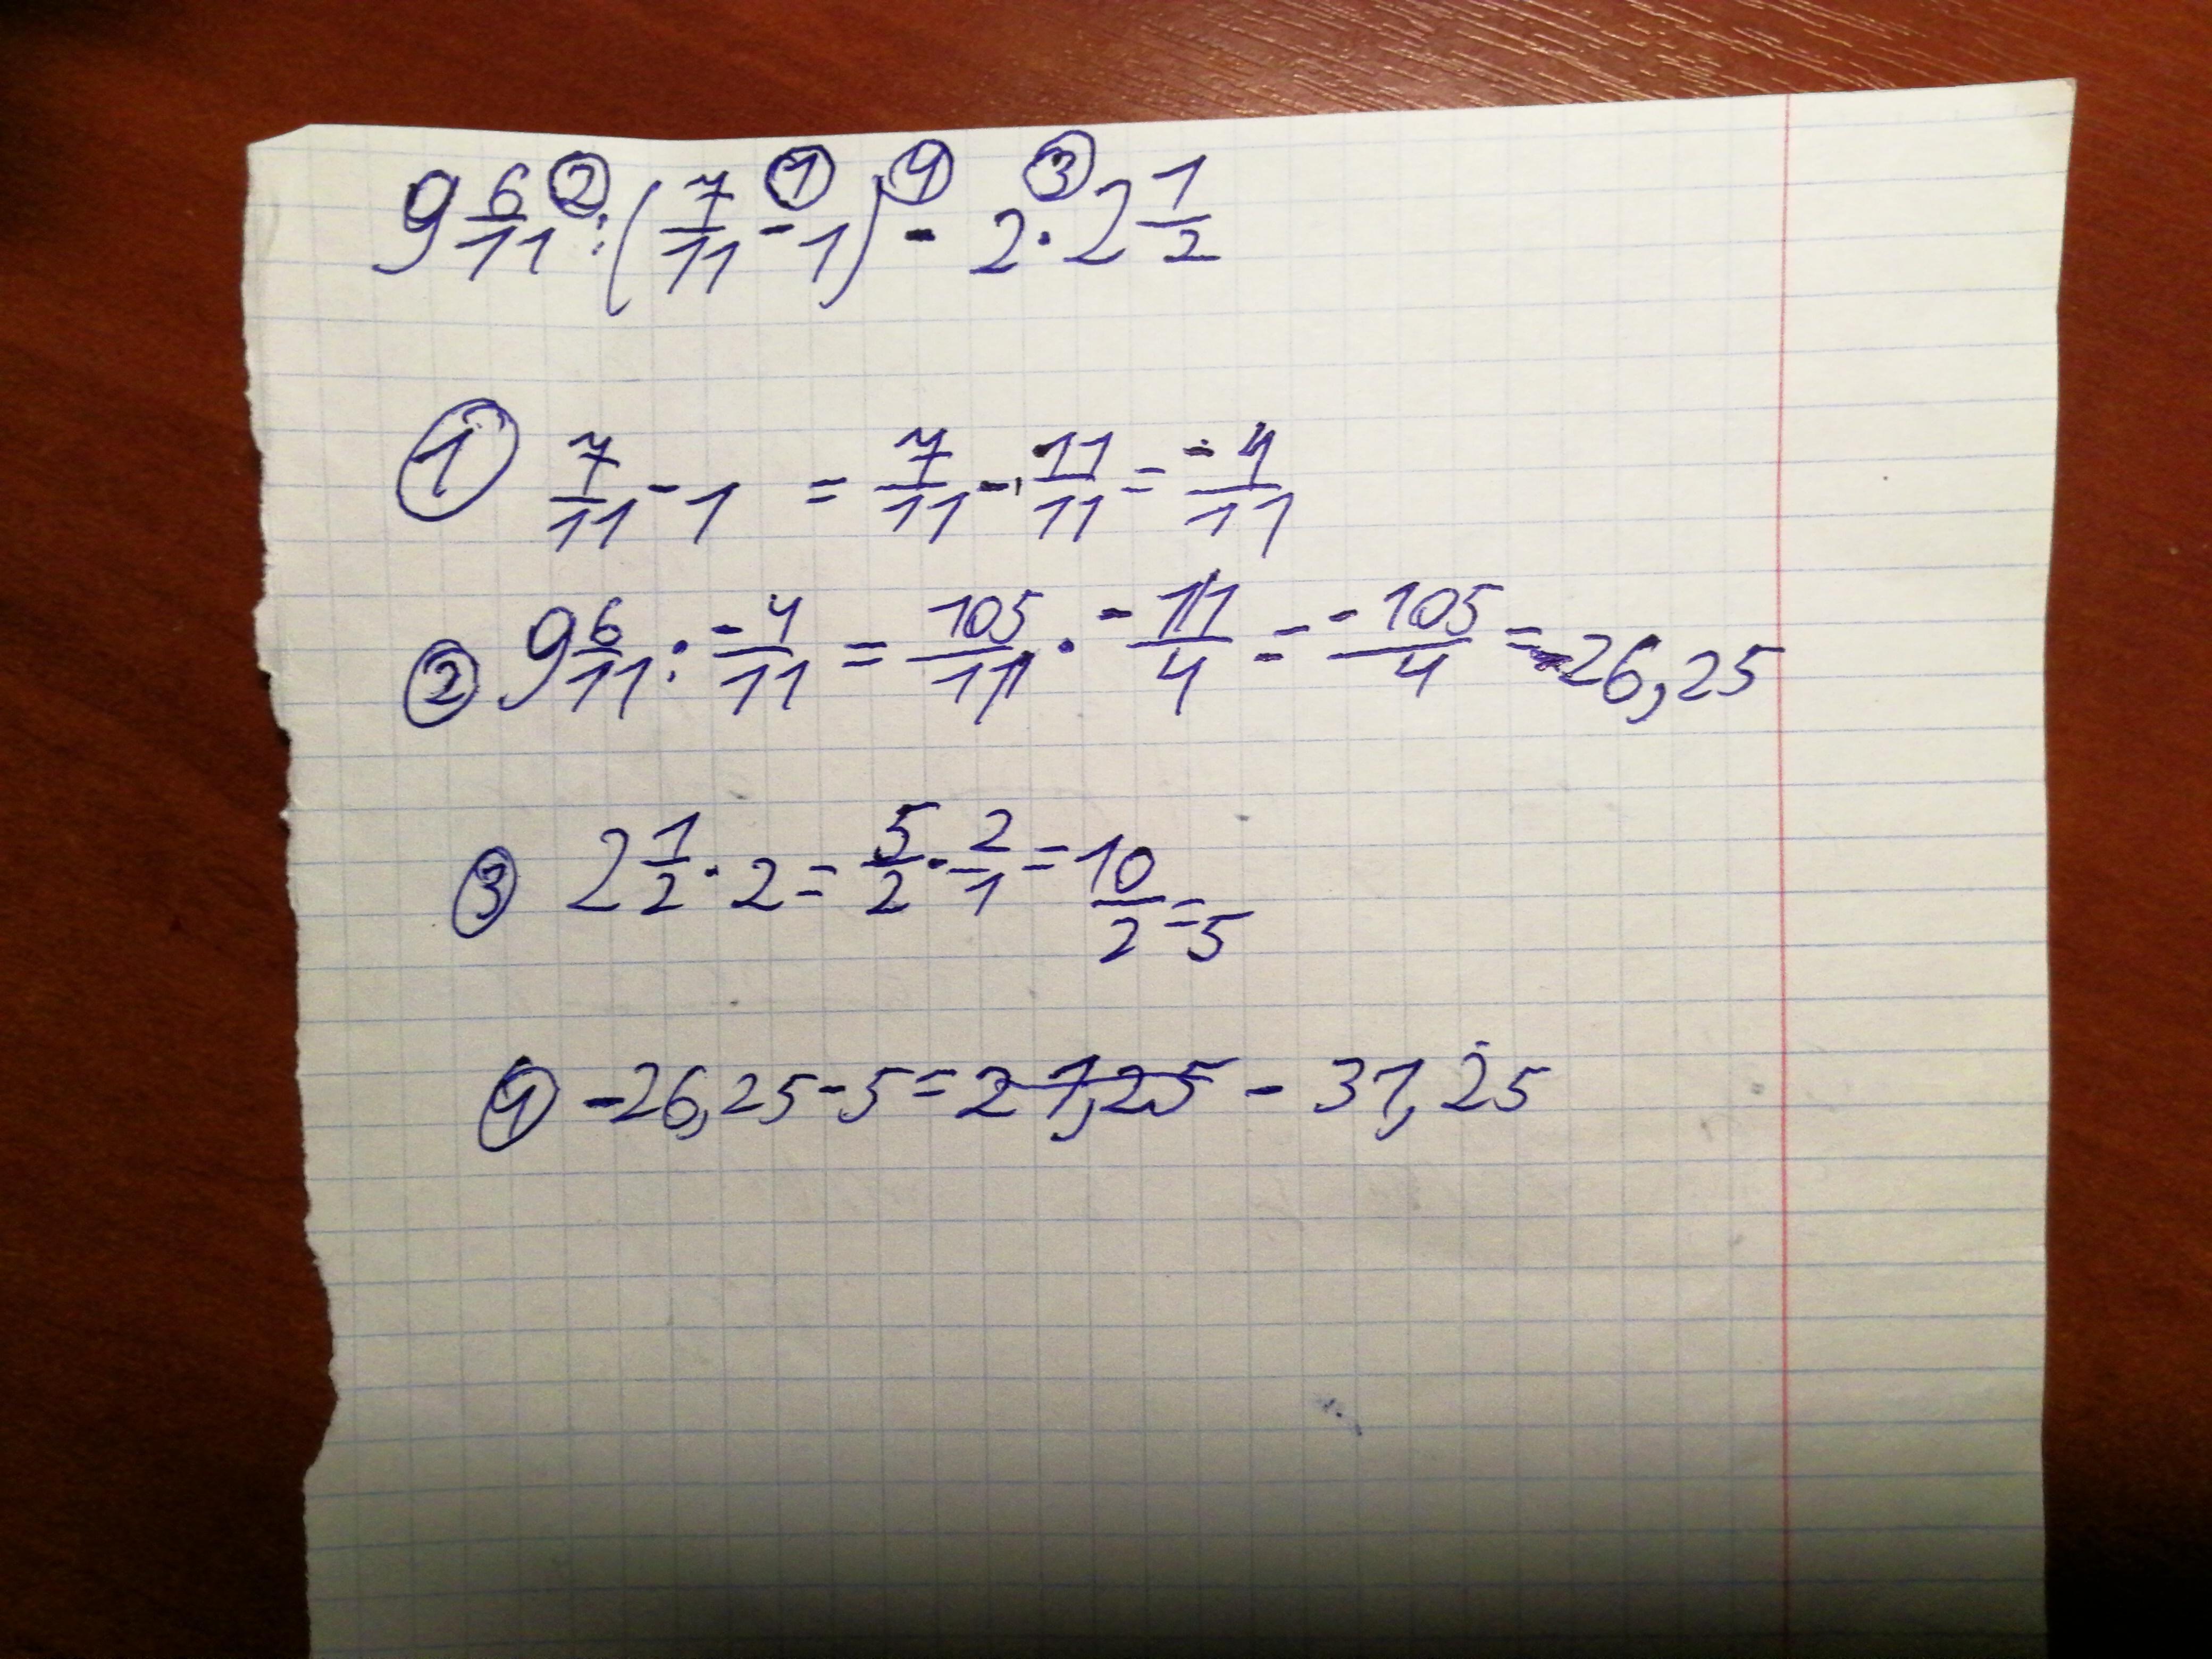 9 6/11 ② : ( 7/11 ① - 1 ) ④ - 2 ③ · 2 1/2
① 7/11 - 1 = 7/11 - 11/11 = -4/11
② 9 6/11 : -4/11 = 105/11 · -11/4 = -105/4 = -26,25
③ 2 1/2 · 2 = 5/2 · 2/1 = 10/2 = 5
④ -26,25 - 5 = 21,25 - 31,25